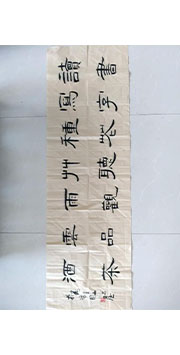 讀書
寫字
種花
艸聽
雨觀
雲品
酒茶